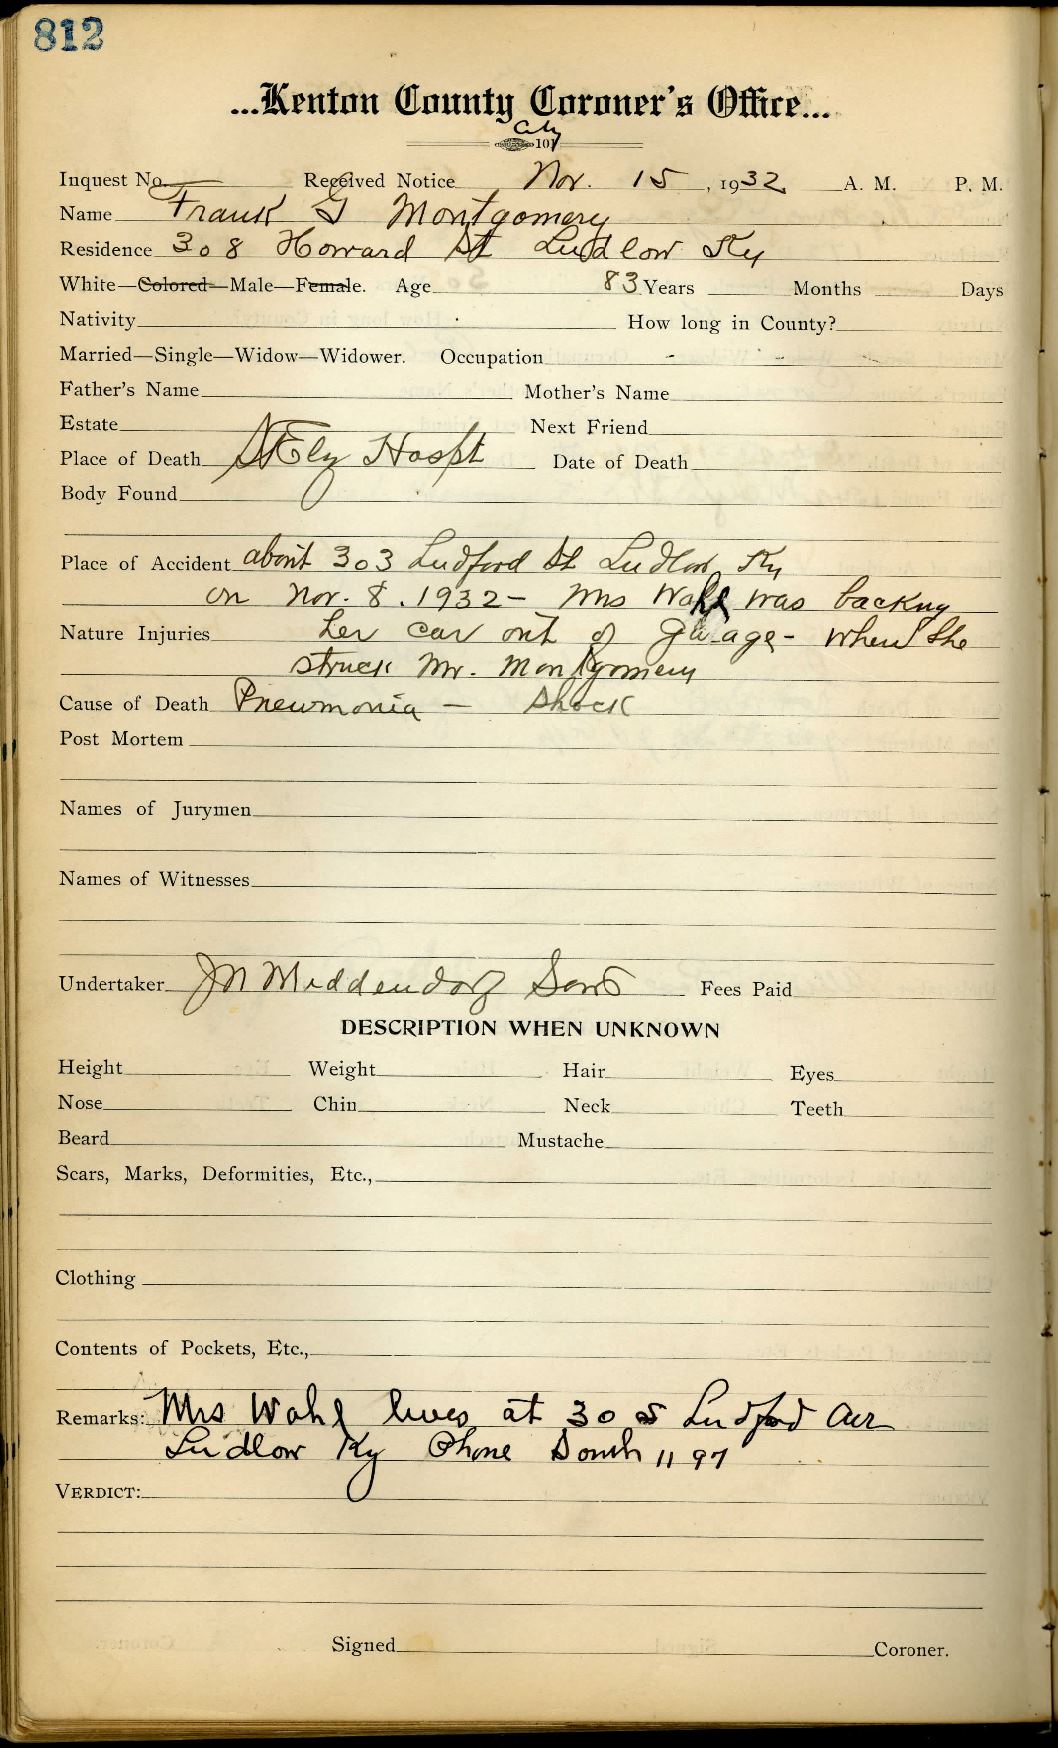 812
...Kenton County Coroner's Office...
City
107
Inquest No. Received Notice Nov. 15, 1932 A. M. P. M.
Name Frank G Montgomery
Residence 308 Howard St Ludlow Ky
White—Colored—Male—Female. Age 83 Years Months Days
Nativity How long in County?
Married—Single—Widow—Widower. Occupation - -
Father's Name Mother's Name
Estate Next Friend
Place of Death St Ely Hospt Date of Death
Body Found
Place of Accident about 303 Ludford St Ludlow Ky
on Nov. 8. 1932 - Mrs Wahl was backng
Nature Injuries her car out of garage - when she
struck Mr. Montgomery
Cause of Death Pneumonia — Shock
Post Mortem
Names of Jurymen
Names of Witnesses
Undertaker JN Middendorf Sons Fees Paid
DESCRIPTION WHEN UNKNOWN
Height Weight Hair Eyes
Nose Chin Neck Teeth
Beard Mustache
Scars, Marks, Deformities, Etc.,
Clothing
Contents of Pockets, Etc.,
Remarks: Mrs Wahl lives at 305 Ludford Ave
Ludlow Ky Phone South 1197
VERDICT:
Signed Coroner.